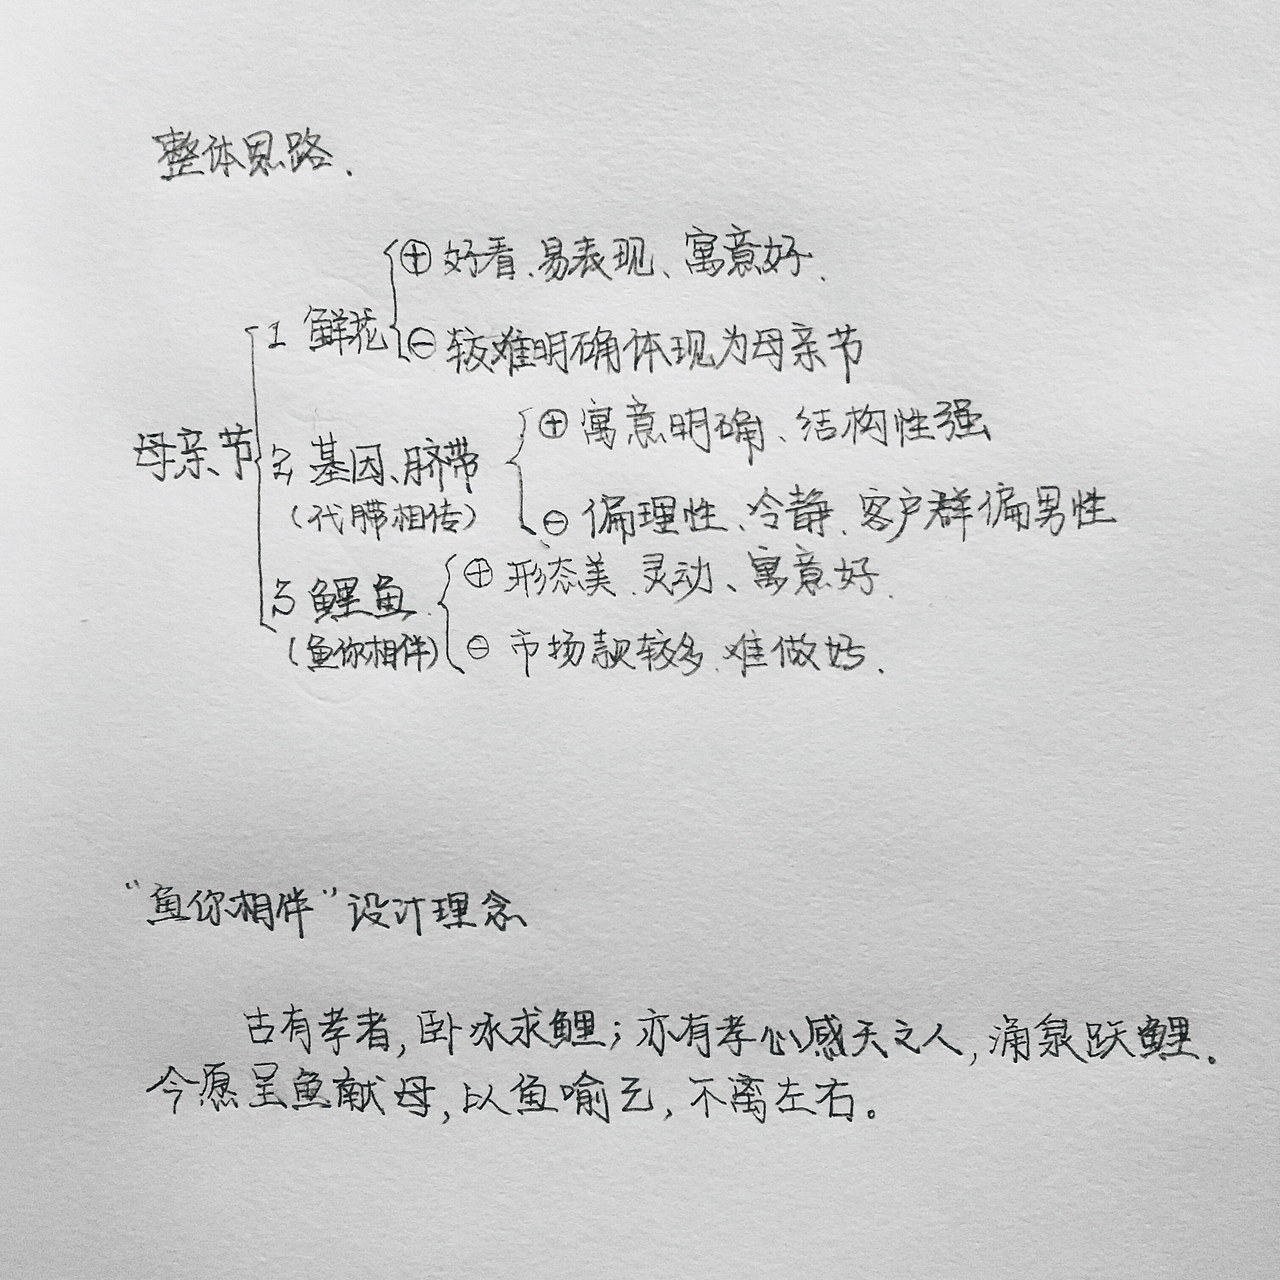 整体思路、
⊕ 好看、易表现、寓意好、
1 鲜花
⊖ 较难明确体现为母亲节
母亲节
⊕ 寓意明确、结构性强
2 基因、脐带
(代带相传)
⊖ 偏理性、冷静、客户群偏男性
⊕ 形态美、灵动、寓意好、
3 鲤鱼
(鱼你相伴)
⊖ 市场款较多、难做好、
“鱼你相伴”设计理念
古有孝者,卧冰求鲤;亦有孝心感天之人,涌泉跃鲤。
今愿呈鱼献母,以鱼喻己,不离左右。